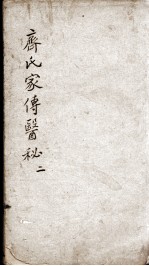 齊氏家傳醫秘二